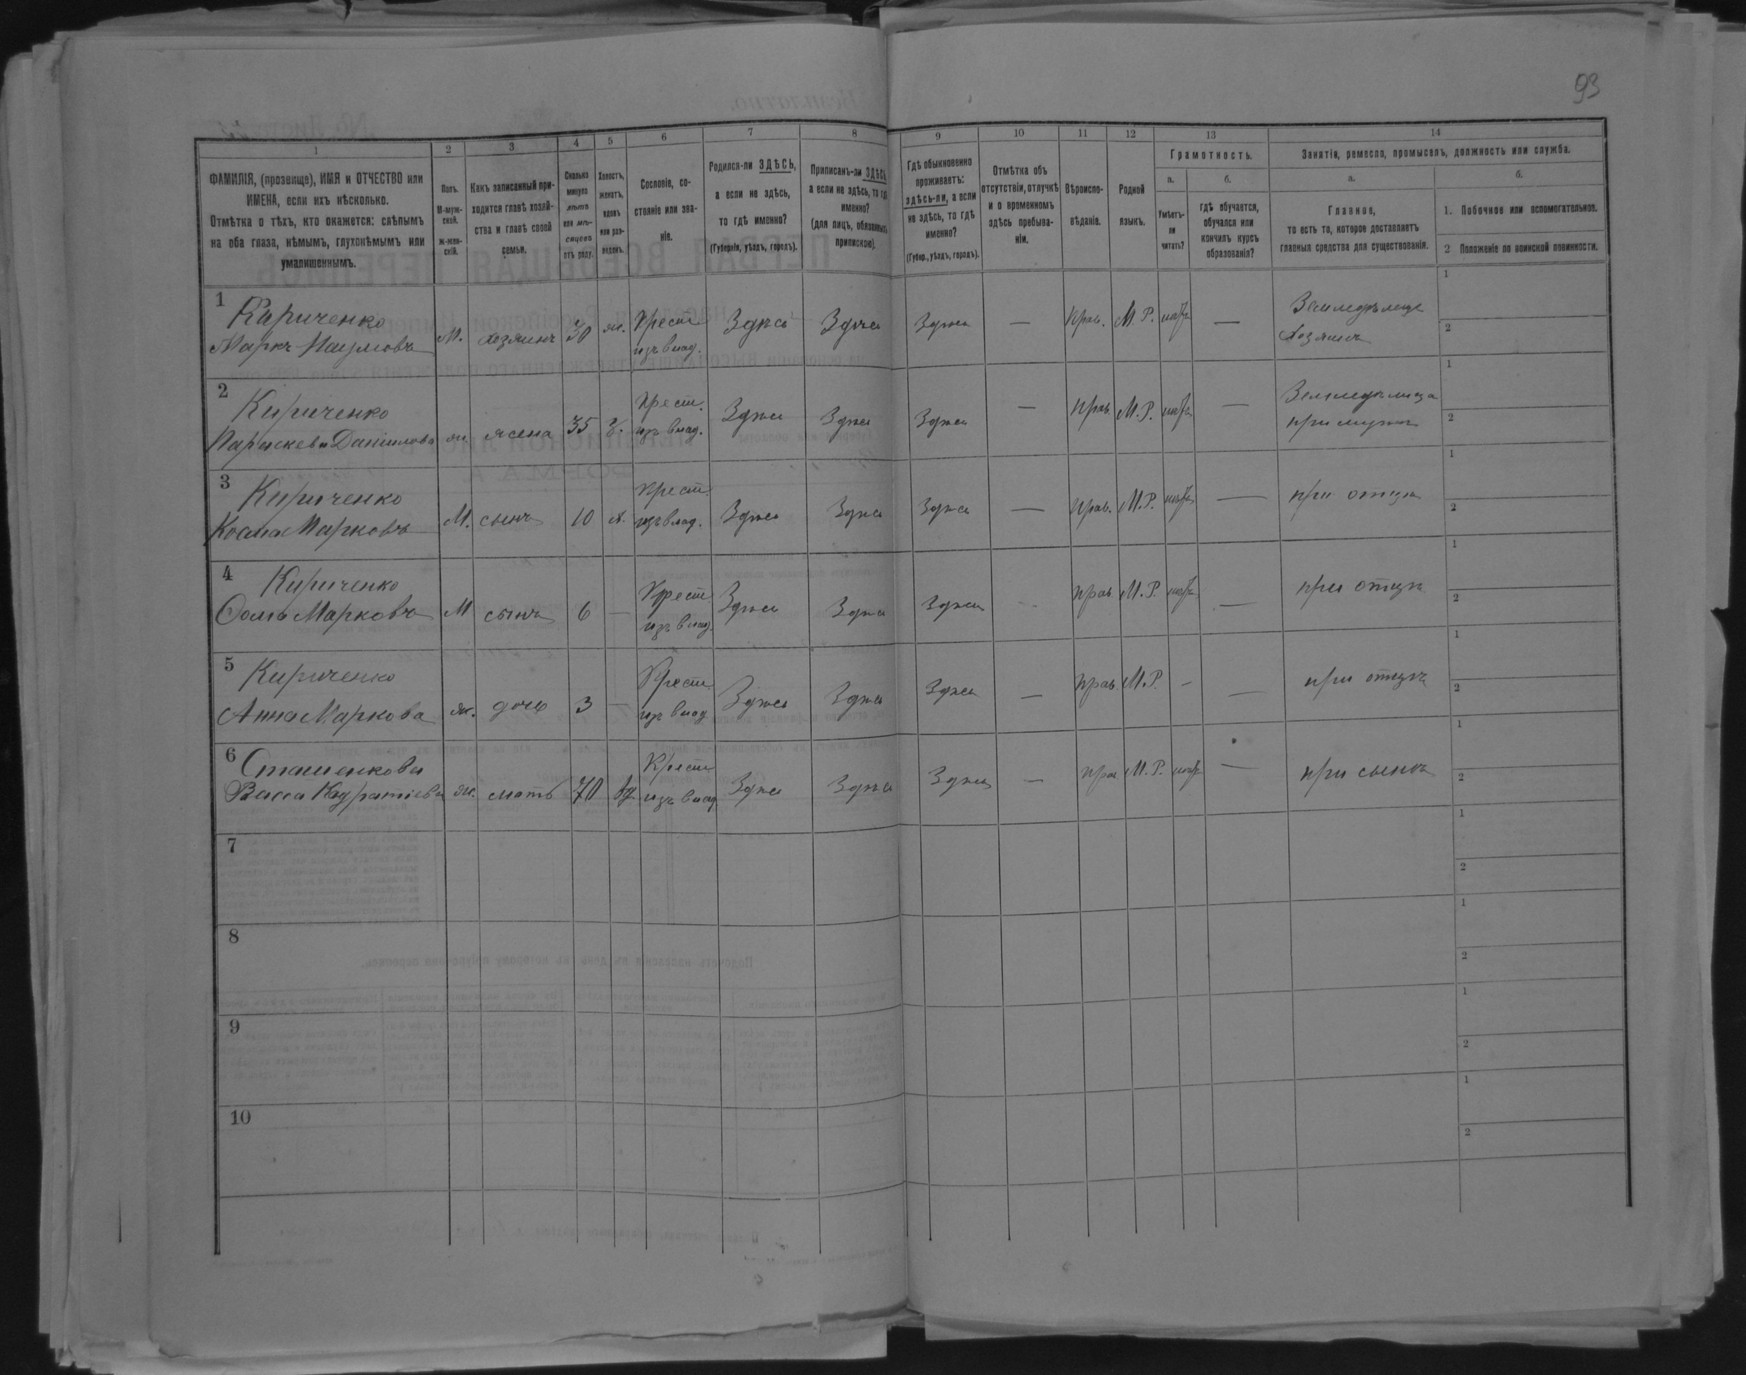 93
1 2 3 4 5 6 7 8 9 10 11 12 13 14
ФАМИЛІЯ, (прозвище), ИМЯ и ОТЧЕСТВО или
ИМЕНА, если ихъ нѣсколько.
Отмѣтка о тѣхъ, кто окажется: слѣпымъ
на оба глаза, нѣмымъ, глухонѣмымъ или
умалишеннымъ.
Полъ.
М-муж-
ской.
Ж-жен-
скій.
Какъ записанный при-
ходится главѣ хозяй-
ства и главѣ своей
семьи.
Сколько
минуло
лѣтъ
или мѣ-
сяцевъ
отъ роду.
Холостъ,
женатъ,
вдовъ
или раз-
веденъ.
Сословіе, со-
стояніе или зва-
ніе.
Родился-ли ЗДѢСЬ,
а если не здѣсь,
то гдѣ именно?
(Губернія, уѣздъ, городъ).
Приписанъ-ли ЗДѢСЬ,
а если не здѣсь, то гдѣ
именно?
(для лицъ, обязанныхъ
припискою).
Гдѣ обыкновенно
проживаетъ:
здѣсь-ли, а если
не здѣсь, то гдѣ
именно?
(Губер., уѣздъ, городъ).
Отмѣтка объ
отсутствіи, отлучкѣ
и о временномъ
здѣсь пребыва-
ніи.
Вѣроиспо-
вѣданіе.
Родной
языкъ.
Грамотность.
а.
Умѣетъ-
ли
читать?
б.
гдѣ обучается,
обучался или
кончилъ курсъ
образованія?
Занятіе, ремесло, промыселъ, должность или служба.
а.
Главное,
то есть то, которое доставляетъ
главныя средства для существованія.
б.
1. Побочное или вспомогательное.
2 Положеніе по воинской повинности.
1 Кириченко
Маркъ Наумовъ М. хозяинъ 30 ж. Крест. изъ влад. Здѣсь Здѣсь Здѣсь — Прав. М. Р. — Земледѣлецъ
Хозяинъ
1
2
2 Кириченко
Параскева Даниилова ж. жена 35 з. Крест. изъ влад. Здѣсь Здѣсь Здѣсь — Прав. М. Р. — Земледѣлица
при мужѣ
1
2
3 Кириченко
Косма Марковъ М. сынъ 10 х. Крест. изъ влад. Здѣсь Здѣсь Здѣсь — Прав. М. Р. — при отцѣ
1
2
4 Кириченко
Ѳома Марковъ М сынъ 6 — Крест. изъ влад. Здѣсь Здѣсь Здѣсь — Прав М. Р. — при отцѣ
1
2
5 Кириченко
Анна Маркова ж. дочь 3 — Крест. изъ влад Здѣсь Здѣсь Здѣсь — Прав М. Р. - — при отцѣ
1
2
6 Сташенкова
Васса Кодратіева ж. мать 70 вд Крест изъ влад Здѣсь Здѣсь Здѣсь — Прав М. Р. — при сынѣ
1
2
7
1
2
8
1
2
9
1
2
10
1
2